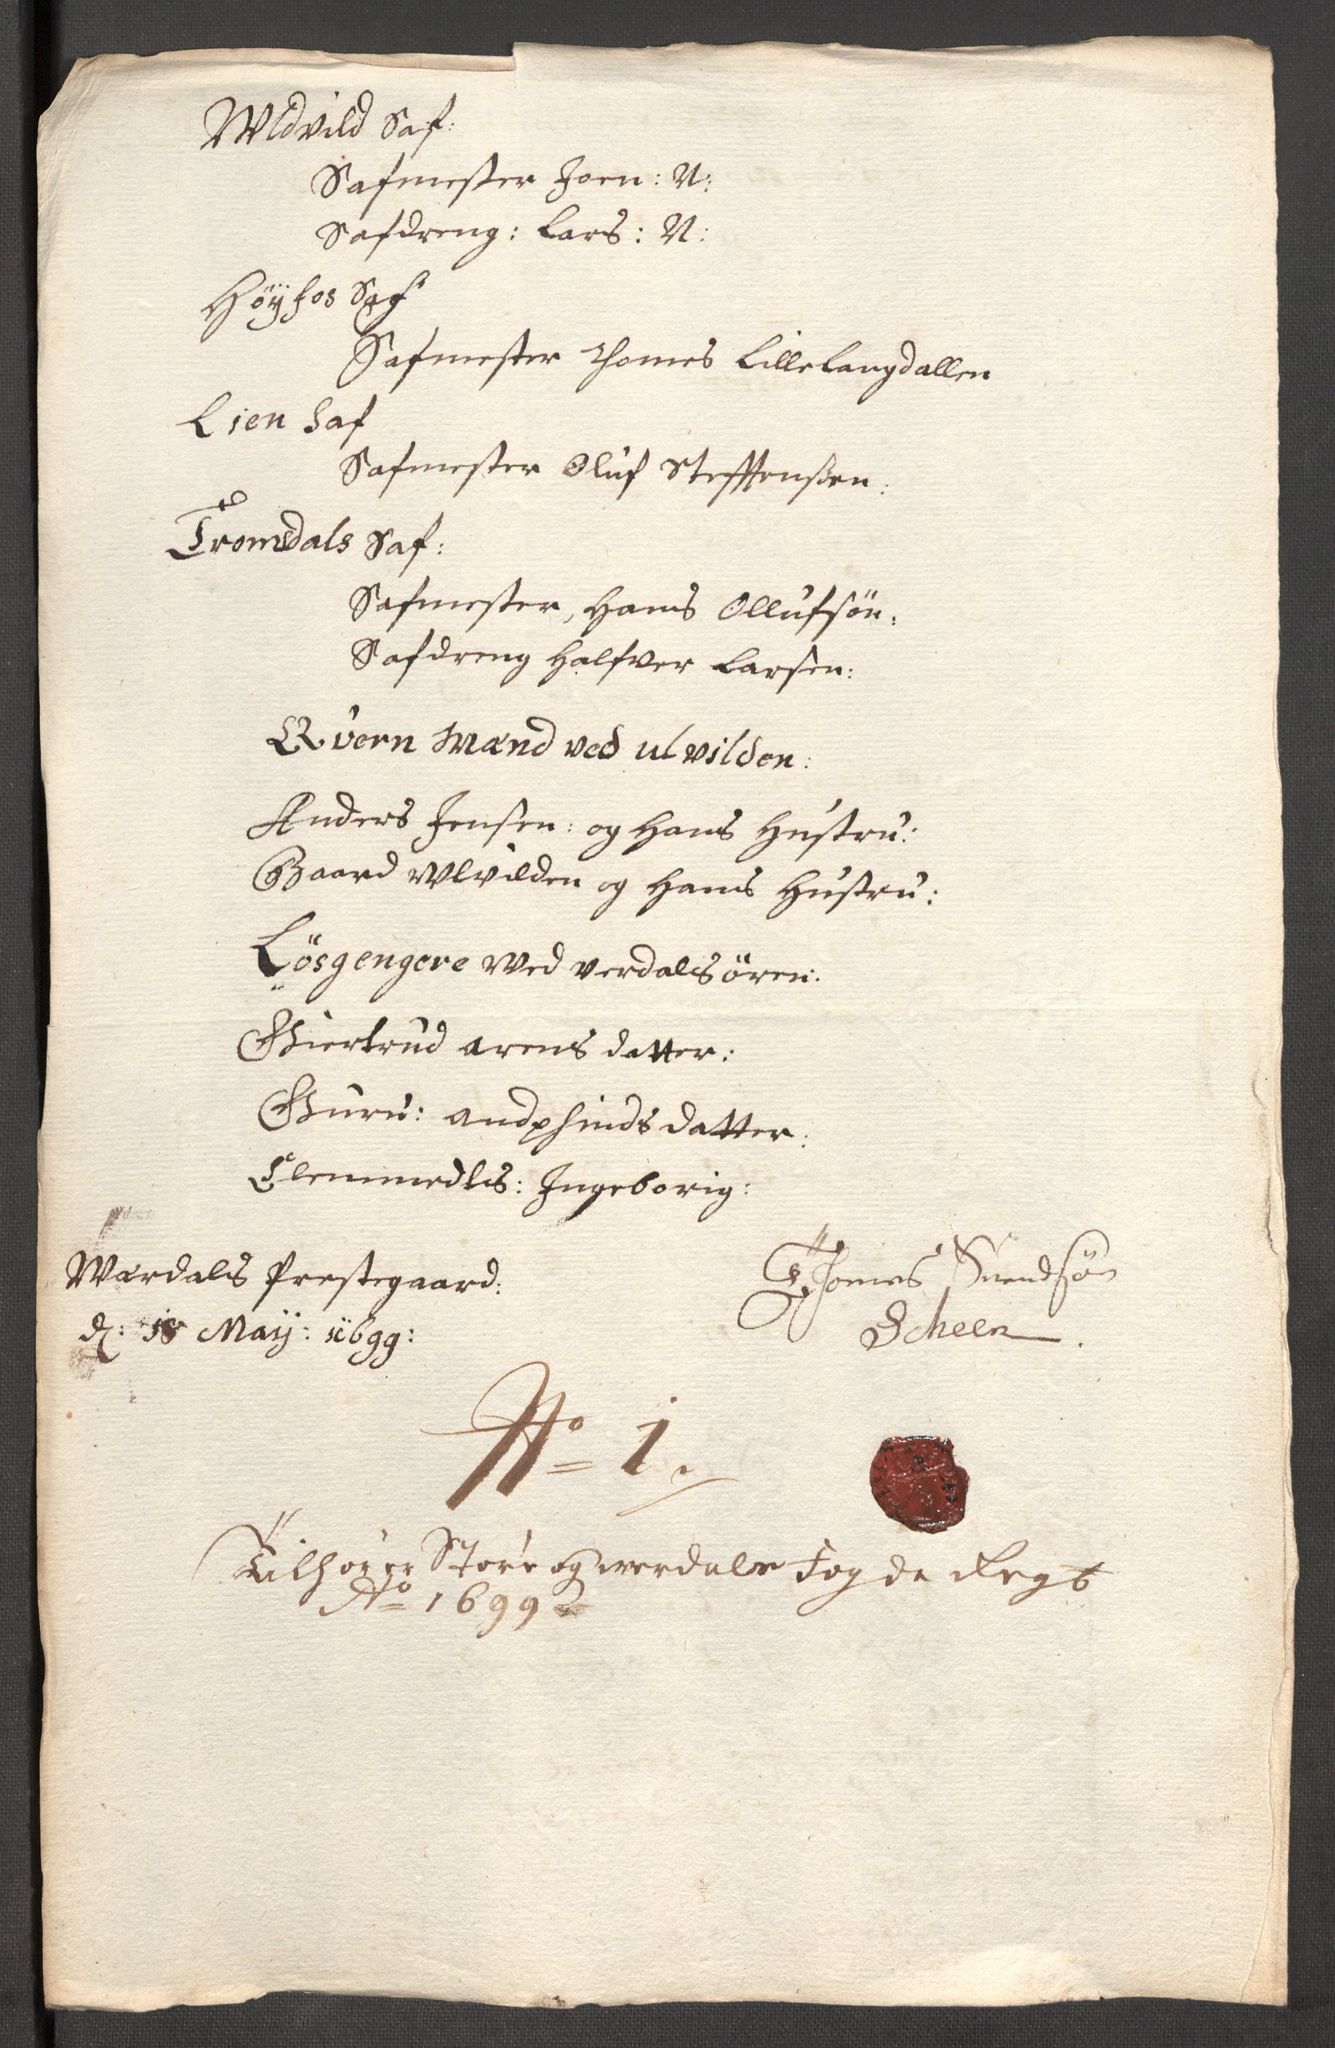 Wldvild Saf:
Safmester Joen: N:
Safdreng: Lars: N:
Höÿfos Saf
Safmester Thomes Lillelangdallen
Lien Saf
Safmester Oluf Steffensßen:
Tromsdals Saf:
Safmester, Hans Ollufsön:
Safdreng Halfver Larsen:
Qvern Mænd ved ulvilden:
Anders Jensen: og Hans Hustru:
Baard Wlvilden og Hans Hustru:
Lösgengere Wed verdalsören:
Giertrud arens datter:
Guru: andphinds datter:
Clemmedts: Ingeborig:
Wærdals Prestegaard:
d: 18 Maÿ: 1699:
Thomes Suendsön
Scheen
No = 1.
Tilhörer Störe og werdals Fogde Regt
Ao 1699